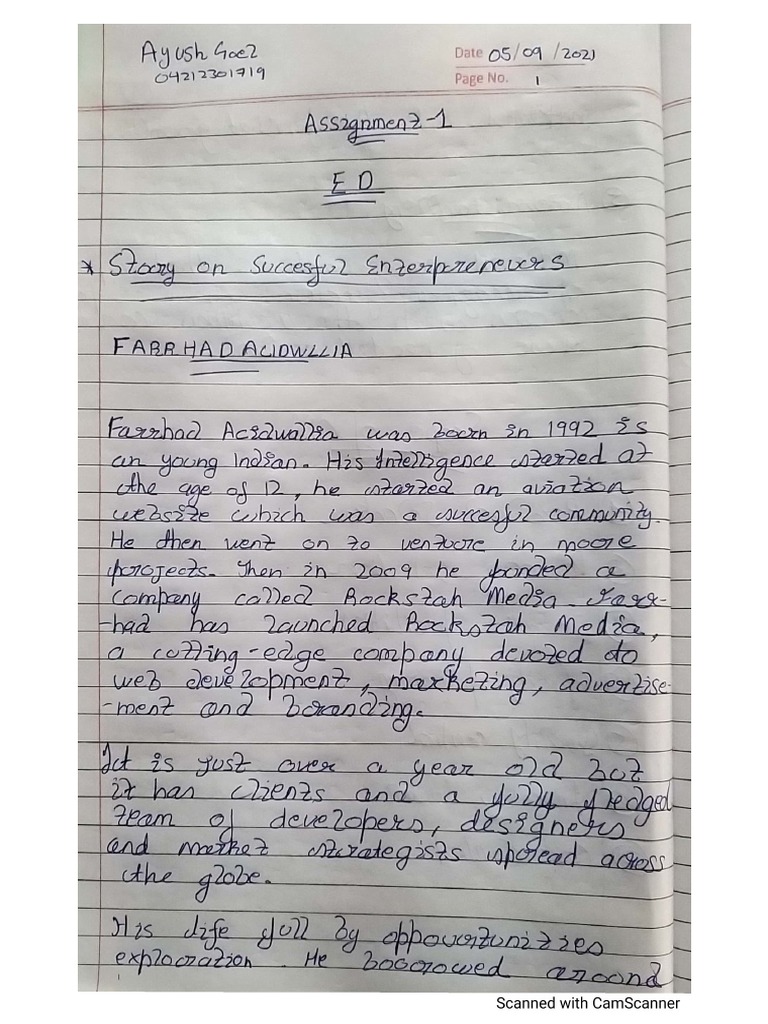 Ayush Goel
04212301719
Date 05/09/2021
Page No. 1
Assignment-1
ED
* Story on Succesful Enterpreneuers
FARRHAD ACIDWLLIA
Farrhad Acidwallia was born in 1992 is
an young Indian. His Intelligence started at
the age of 12, he started an aviation
website which was a succesful community.
He then went on to venture in more
projects. Then in 2009 he founded a
company called Rockstah Media. Farr-
-had has launched Rockstah Media,
a cutting-edge company devoted to
web development, marketing, advertise-
-ment and branding.
It is just over a year old but
it has clients and a fully fledged
team of developers, designers
and market strategists spread across
the globe.
His life full by oppourtunities
exploration. He borrowed around
Scanned with CamScanner